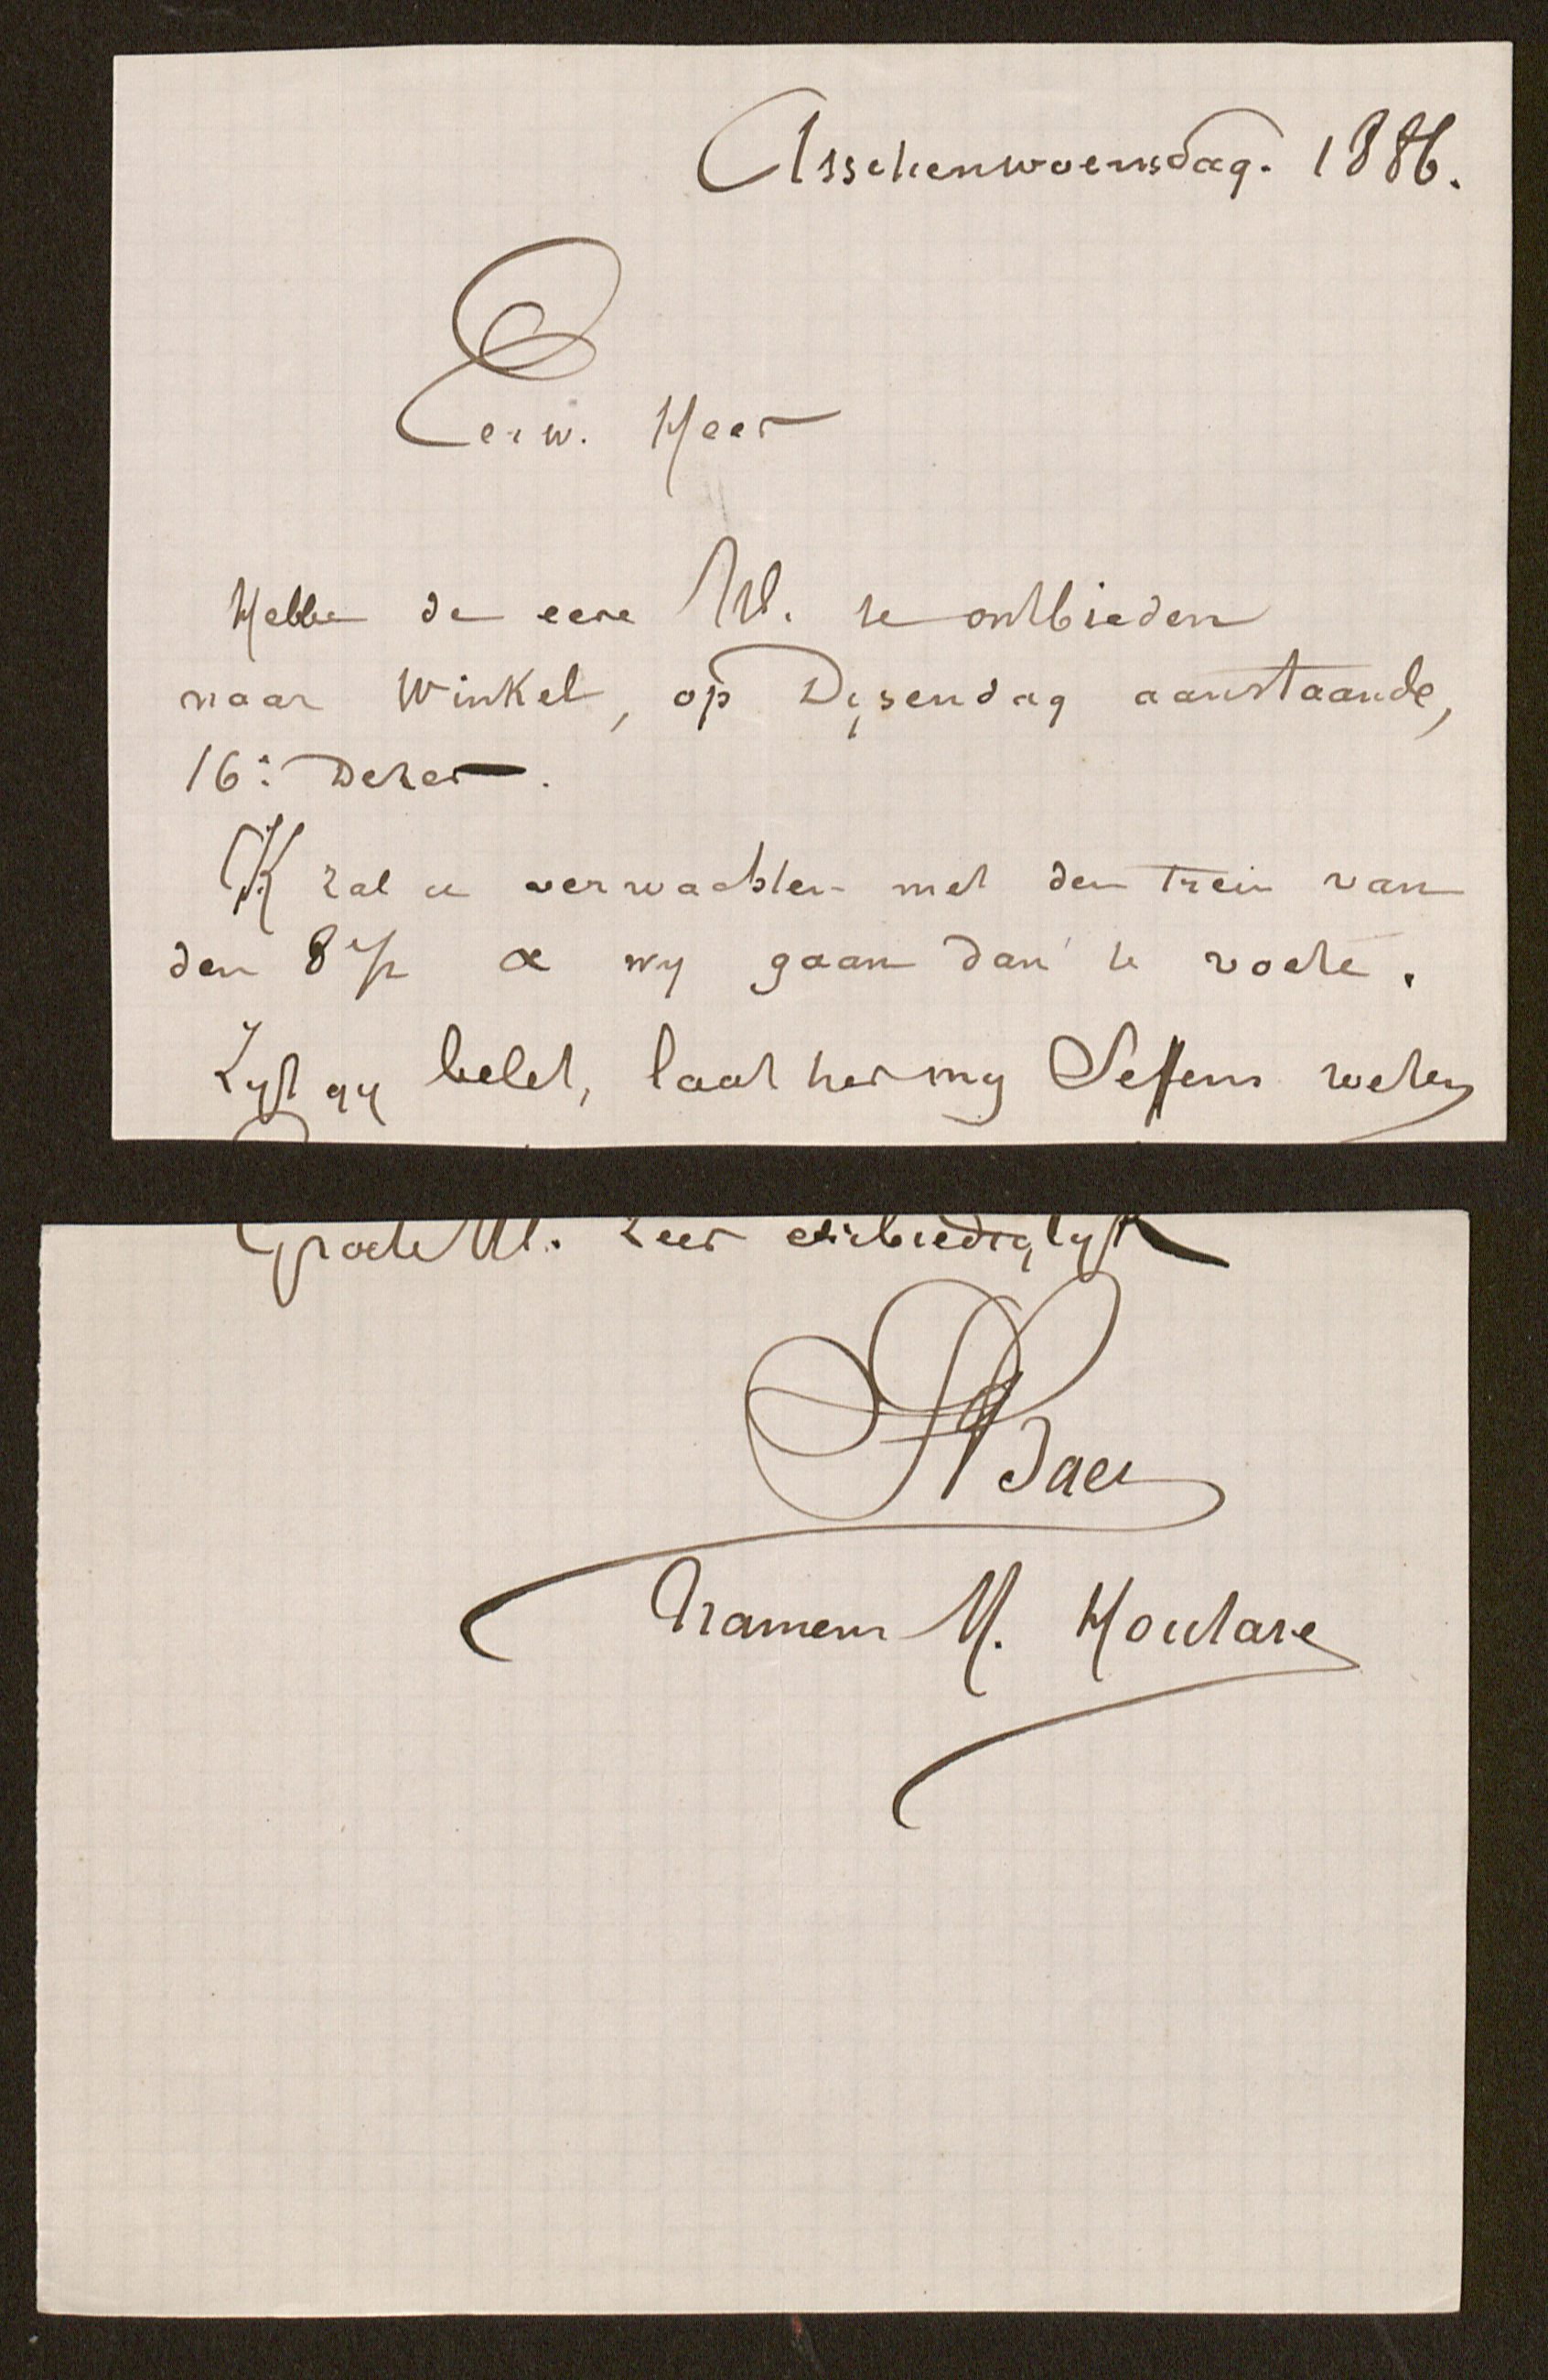 Asschenwoensdag. 1886.
Eerw. Heer
Hebbe de eere Ul. te ontbieden
naar Winkel, op Dijsendag aanstaande,
16: dezer.
'K zal u verwachten met den trein van
den 8 1/2 & wy gaan dan te voete.
Zyt gy belet, laat het my Seffens weten
Groete Ul. zeer eerbiediglyk
ABaes
Namens M. Houtave